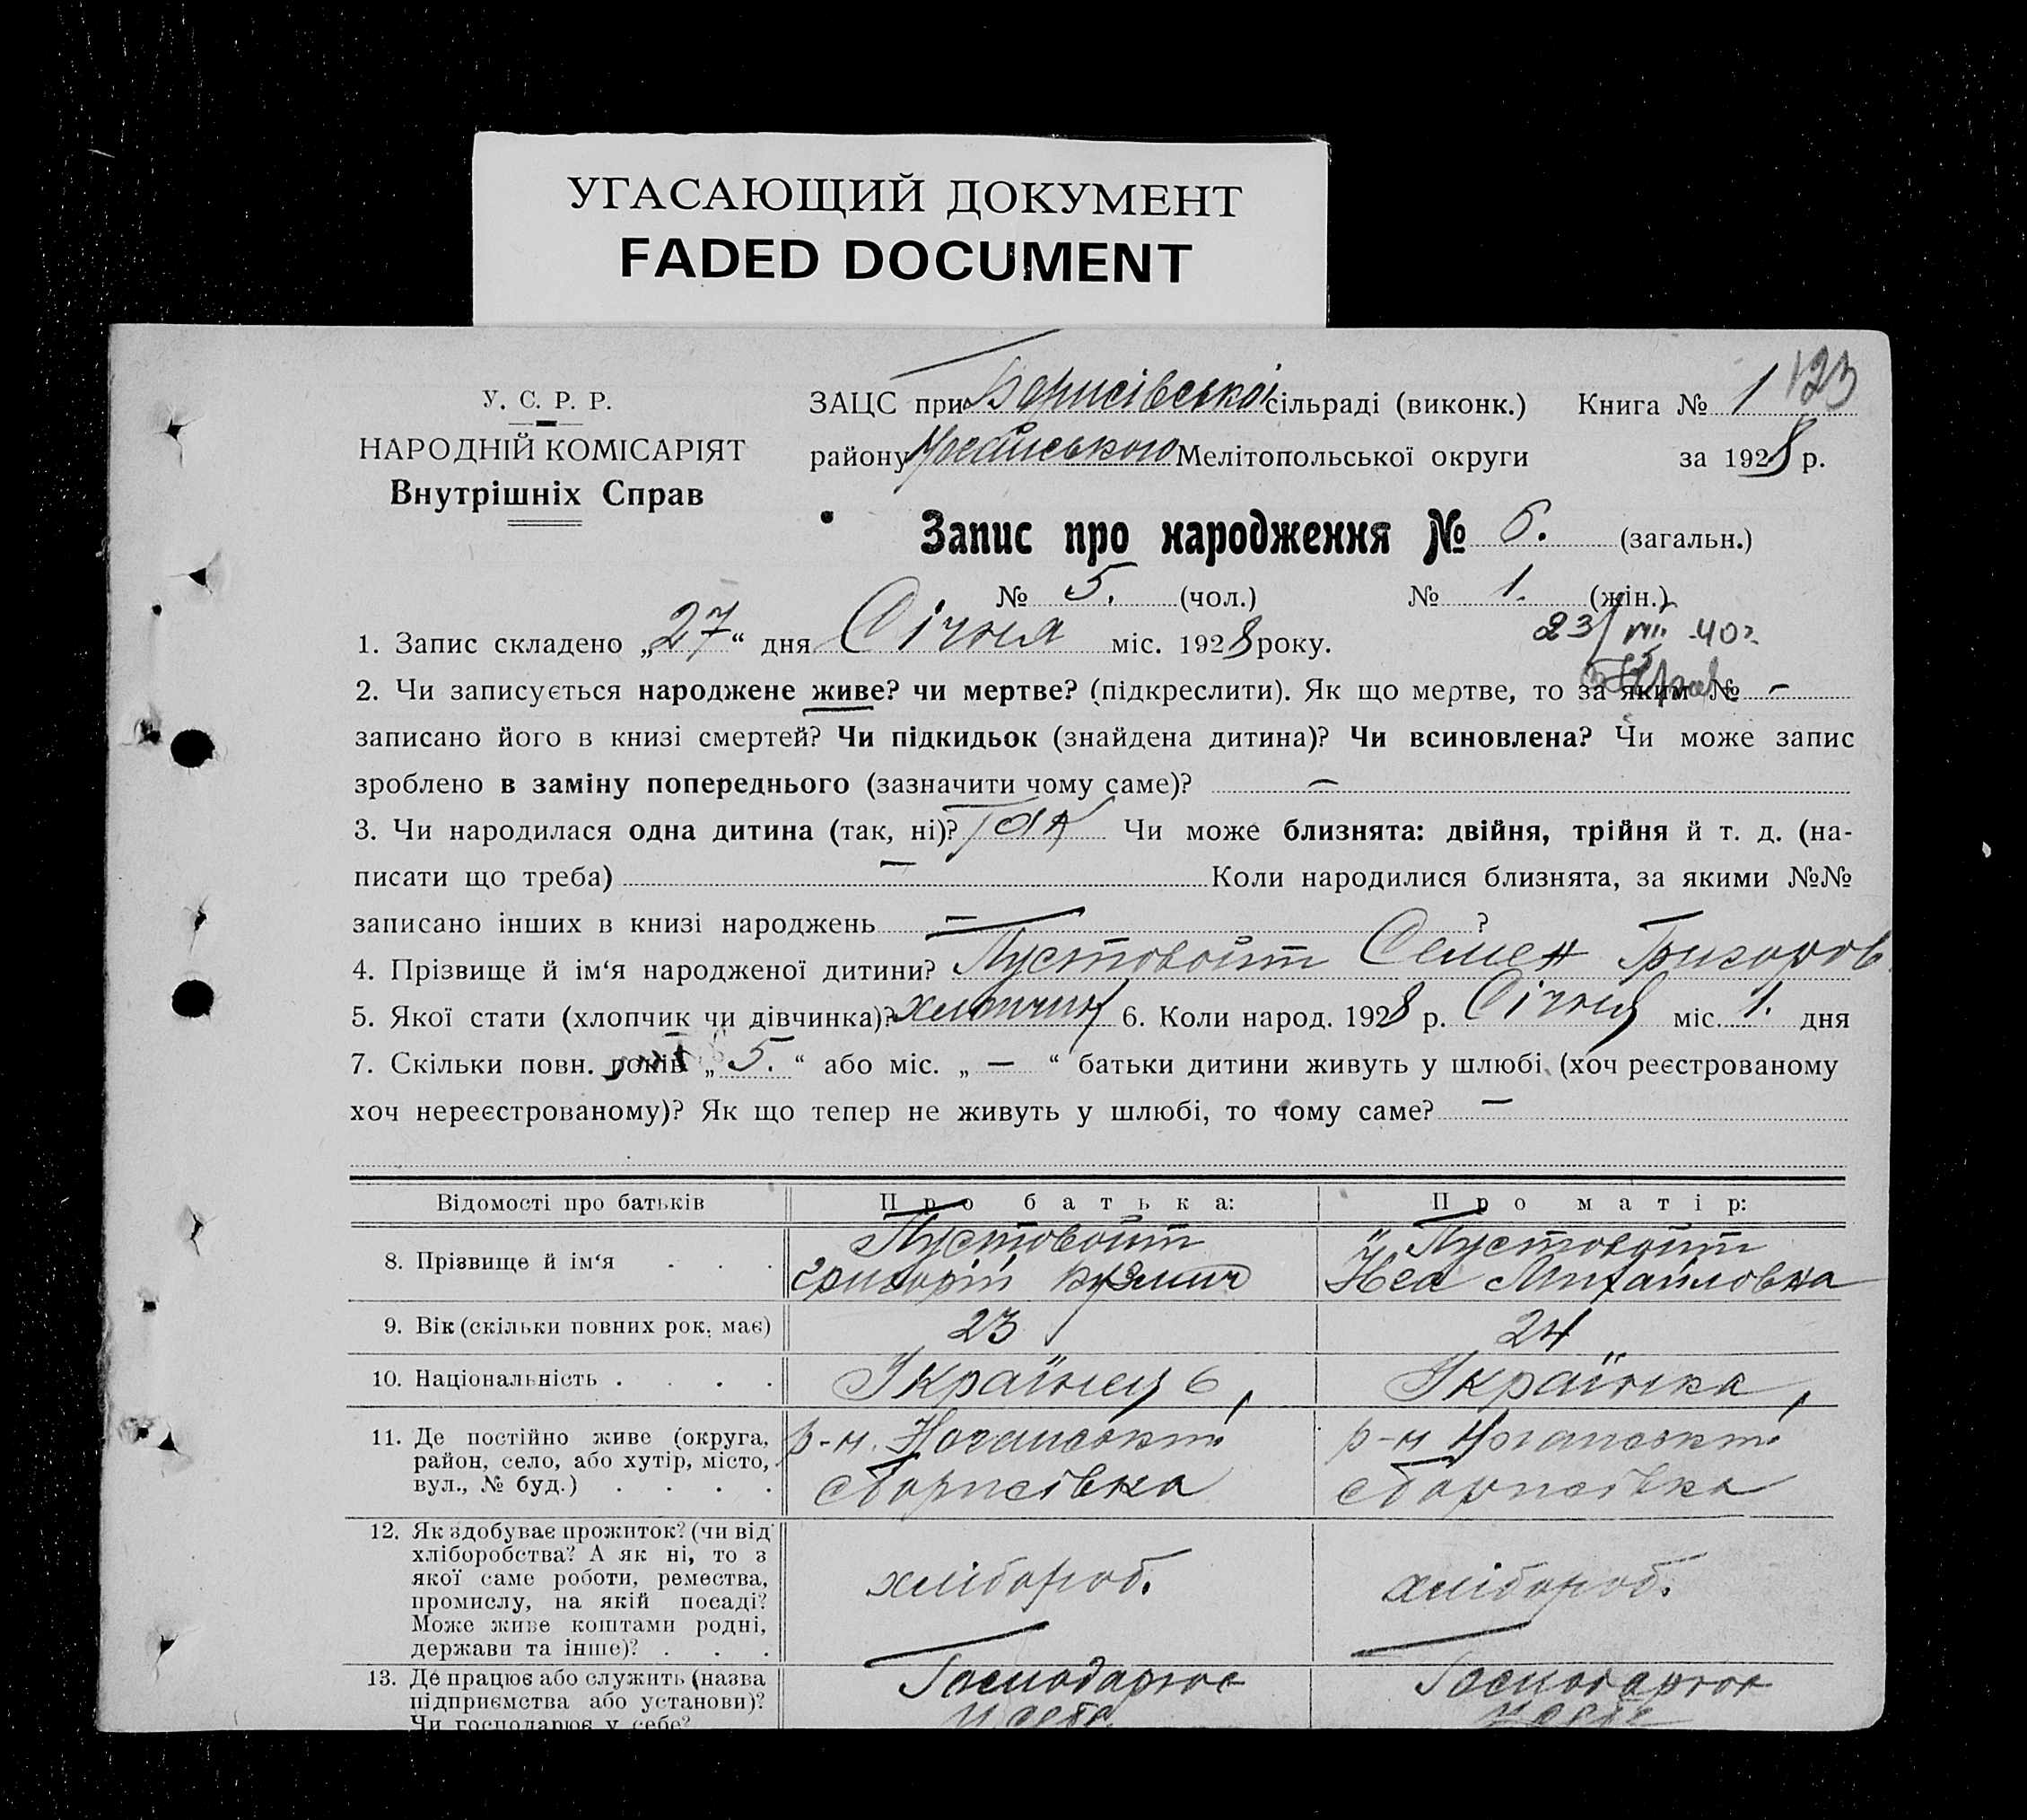 УГАСАЮЩИЙ ДОКУМЕНТ
FADED DOCUMENT
У. С. Р. Р.
НАРОДНІЙ КОМІСАРІЯТ
Внутрішніх Справ
ЗАЦС при Борисівської сільраді (виконк.) Книга № 1 123
району Ногайського Мелітопольської округи за 1928 р.
Запис про народження № 6. (загальн.)
№ 5. (чол.) № 1. (жін.)
1. Запис складено „27“ дня Січня міс. 1928 року.
23/VII 40г.
2. Чи записується народжене живе? чи мертве? (підкреслити). Як що мертве, то за яким № –
записано його в книзі смертей? Чи підкидьок (знайдена дитина)? Чи всиновлена? Чи може запис
зроблено в заміну попереднього (зазначити чому саме)? –
3. Чи народилася одна дитина (так, ні)? Так Чи може близнята: двійня, трійня й т. д. (на-
писати що треба) – Коли народилися близнята, за якими №№
записано інших в книзі народжень – ?
4. Прізвище й ім‘я народженої дитини? Пустовойт Семен Григоров
5. Якої стати (хлопчик чи дівчинка)? хлопчик 6. Коли народ. 1928 р. Січня міс. 1. дня
7. Скільки повн. років „5.“ або міс. „ – “ батьки дитини живуть у шлюбі (хоч реєстрованому
хоч нереєстрованому)? Як що тепер не живуть у шлюбі, то чому саме? –
Відомості про батьків Про батька: Про матір:
8. Прізвище й ім‘я . . . Пустовойт Пустовойт
Григорій Михайловна
9. Вік (скільки повних рок. має) 23 24
10. Національність . . . . Українець Українка
11. Де постійно живе (округа,
район, село, або хутір, місто,
вул., № буд.) . . . .
р-н. Ногайський р-н Ногайський
с Борисівка с Борисівка
12. Як здобуває прожиток? (чи від
хліборобства? А як ні, то з
якої саме роботи, ремества,
промислу, на якій посаді?
Може живе коштами родні,
держави та інше)? . . .
хлібороб. хлібороб.
13. Де працює або служить (назва
підприємства або установи)?
Чи господарює у себе?
Господарює Господарює
у себе у себе